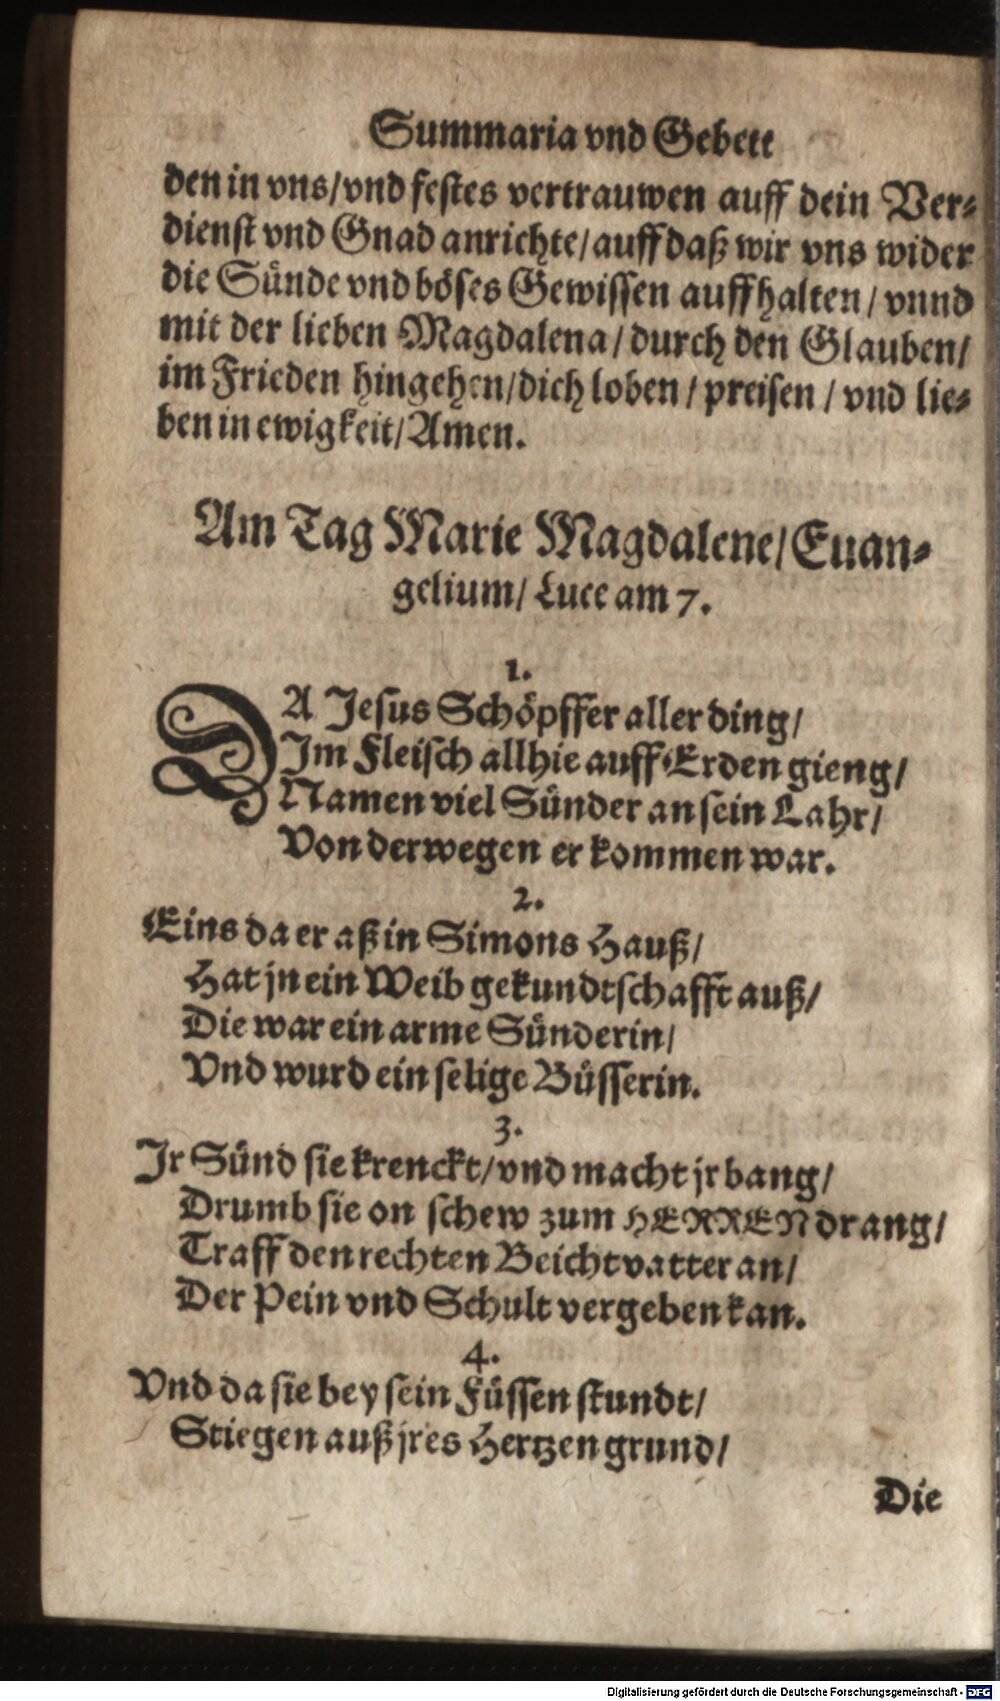 Summaria vnd Gebett
den in vns/vnd festes vertrauwen auff dein Ver-
dienst vnd Gnad anrichte/auff daß wir vns wider
die Sünde vnd böses Gewissen auffhalten/ vnnd
mit der lieben Magdalena/ durch den Glauben/
im Frieden hingehen/dich loben/ preisen/ vnd lie-
ben in ewigkeit/Amen.
Am Tag Marie Magdalene/Euan-
gelium/ Luce am 7.
1.
DA Jesus Schöpffer aller ding/
Im Fleisch allhie auff Erden gieng/
Namen viel Sünder an sein Lahr/
Von derwegen er kommen war.
2.
Eins da er aß in Simons Hauß/
Hat jn ein Weib gekundtschafft auß/
Die war ein arme Sünderin/
Vnd wurd ein selige Büsserin.
3.
Jr Sünd sie krenckt/vnd macht jr bang/
Drumb sie on schew zum HERREN drang/
Traff den rechten Beichtvatter an/
Der Pein vnd Schult vergeben kan.
4.
Vnd da sie bey sein Füssen stundt/
Stiegen auß jres Hertzen grund/
Die
Digitalisierung gefördert durch die Deutsche Forschungsgemeinschaft - DFG